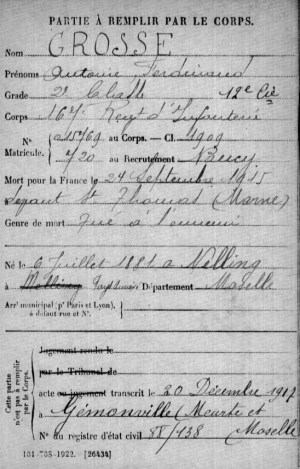 PARTIE À REMPLIR PAR LE CORPS.
Nom GROSSE
Prénoms Antoine Ferdinand
Grade 2e Classe 12e Cie
Corps 167e Regt d'Infanterie
N° 15769 au Corps. — Cl. 1909
Matricule. 720 au Recrutement Nancy
Mort pour la France le 24 Septembre 1915
Servant St Thomas (Marne)
Genre de mort Tué à l'ennemi
Né le 6 Juillet 1881 à Nelling
à Département Moselle
Arrt municipal (pr Paris et Lyon),
à défaut rue et N°.
Cette partie
n'est pas à remplir
par le Corps.
Jugement rendu le
par le Tribunal de
acte ou jugement transcrit le 20 Décembre 1917
à Gémonville (Meurthe et
Moselle
N° du registre d'état civil 88/138
101-708-1922. [26434]